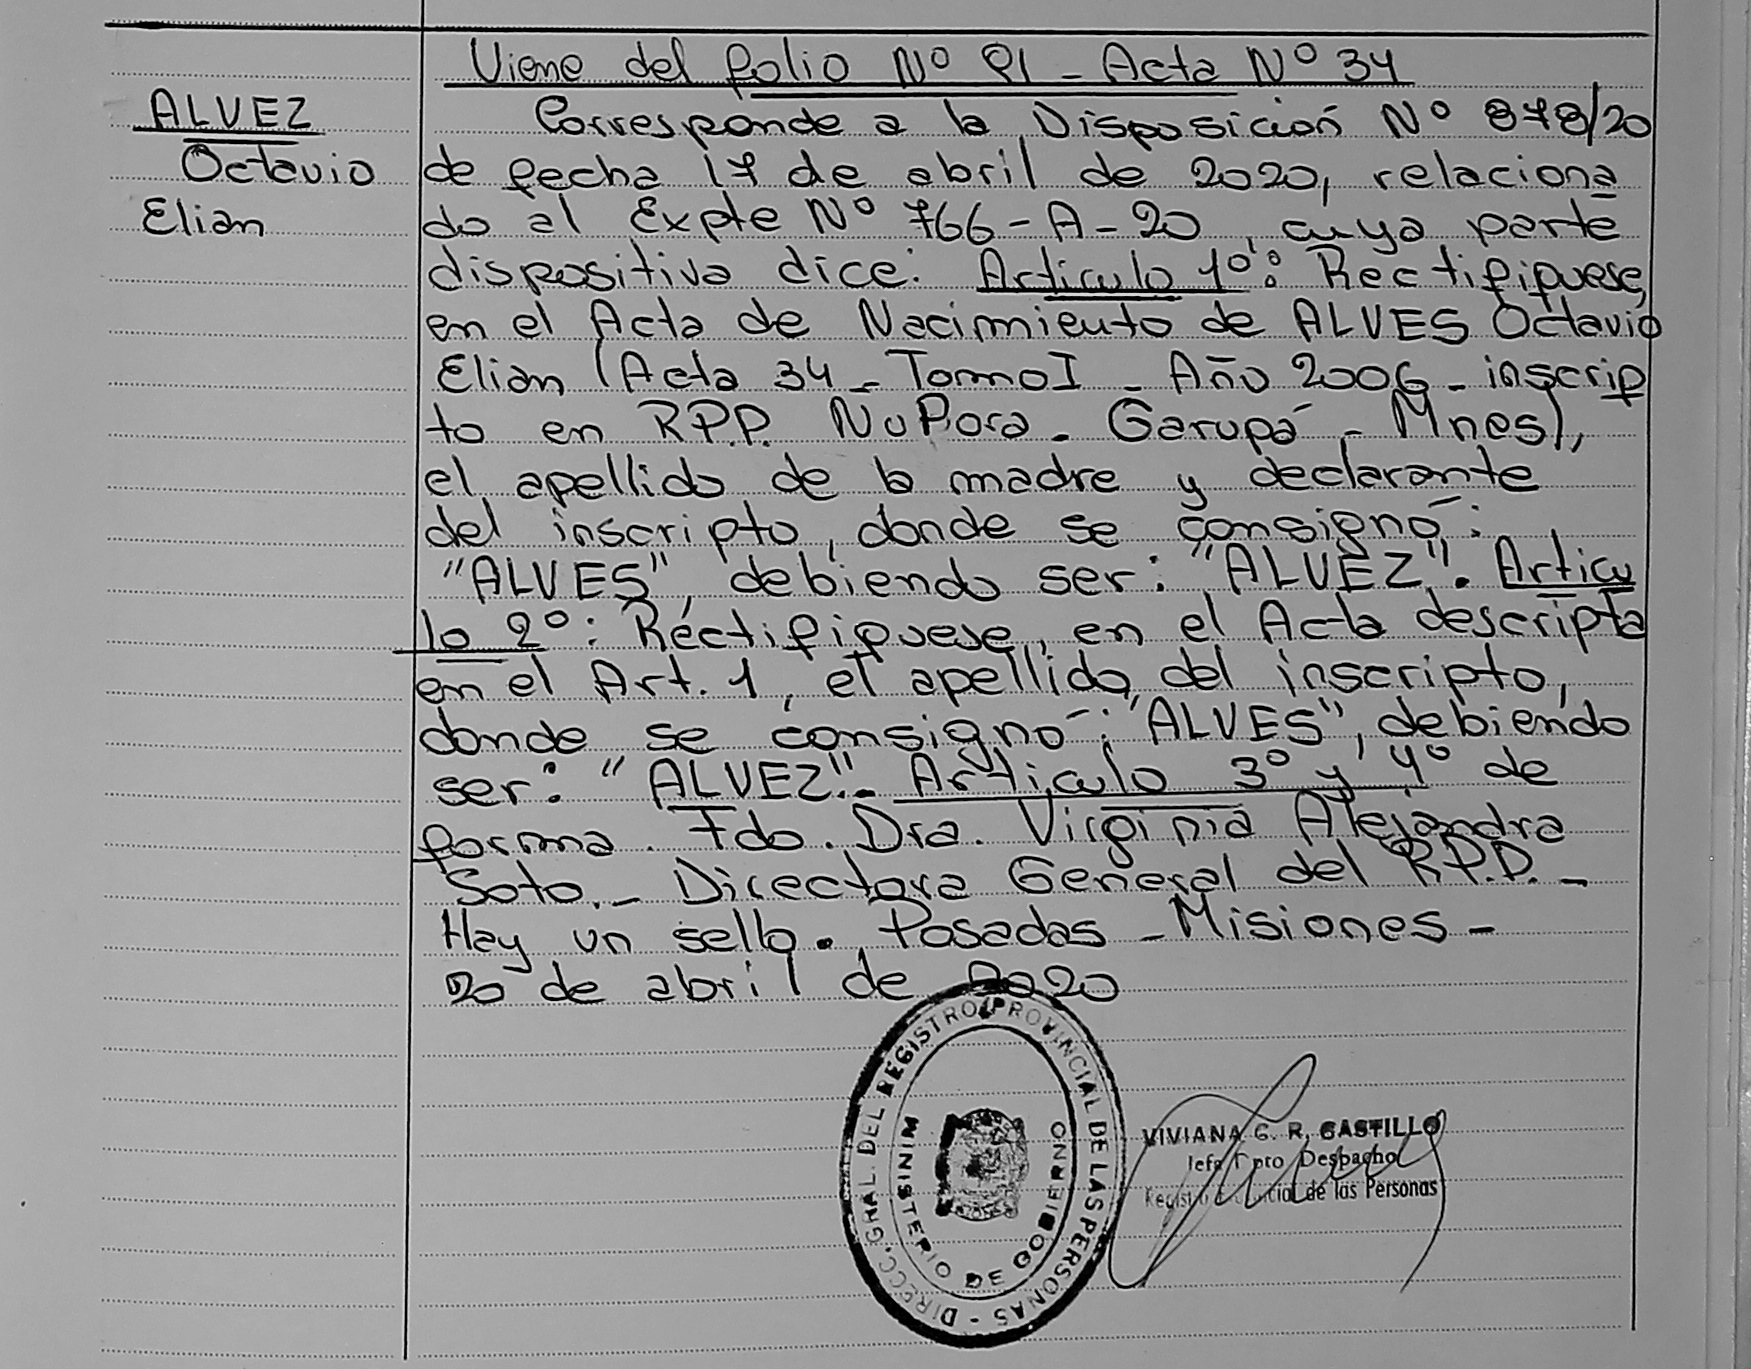 Viene del folio Nº 91 - Acta Nº 34
ALVEZ
Octavio
Elian
Corresponde a la Disposición Nº 878/20
de fecha 17 de abril de 2020, relaciona
do al Expte Nº 766-A-20, cuya parte
dispositiva dice: Articulo 1º: Rectifiquese,
en el Acta de Nacimiento de ALVES Octavio
Elian (Acta 34 - Tomo I - Año 2006 - inscrip
to en R.P.P. Ñu Pora - Garupá - Mnes),
el apellido de la madre y declarante
del inscripto, donde se consignó:
"ALVES", debiendo ser: "ALVEZ". Articu
lo 2º: Rectifiquese, en el Acta descripta
en el Art. 1, el apellido del inscripto,
donde se consignó: "ALVES", debiendo
ser: "ALVEZ".- Articulo 3º y 4º de
forma. Fdo. Dra. Virginia Alejandra
Soto.- Directora General del R.P.P. -
Hay un sello. Posadas - Misiones -
20 de abril de 2020
DIRECC. GRAL. DEL REGISTRO PROVINCIAL DE LAS PERSONAS -
MINISTERIO DE GOBIERNO
VIVIANA G. R. CASTILLO
Jefa Dpto Despacho
Registro Provincial de las Personas